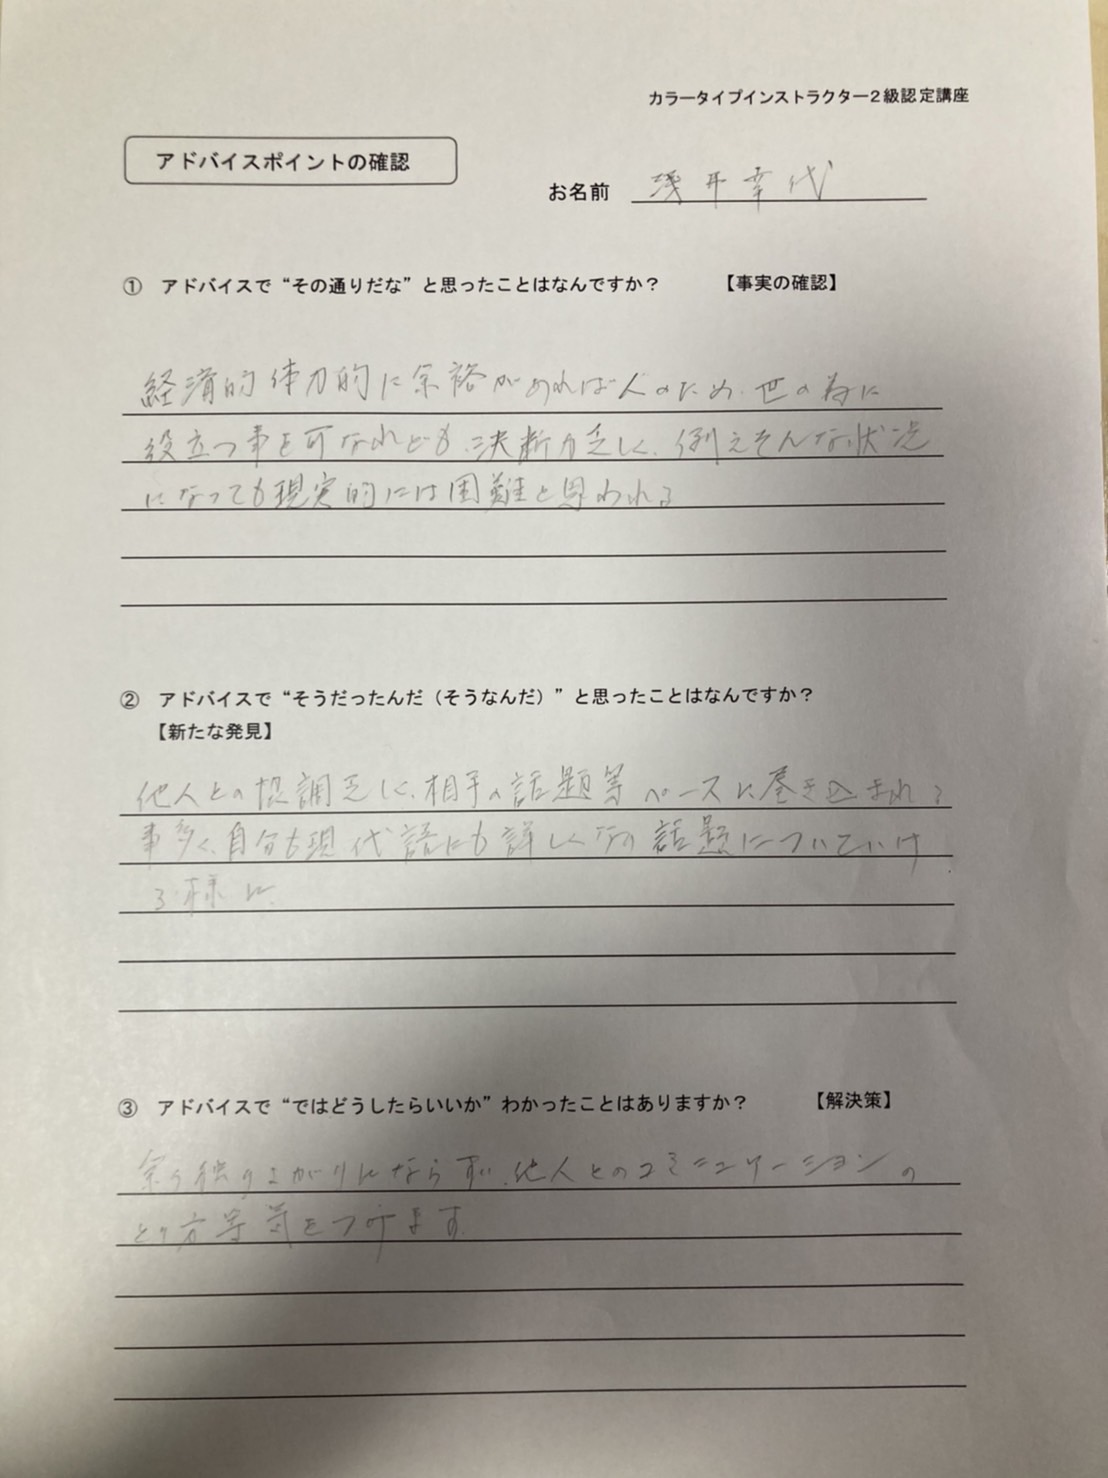 カラータイプインストラクター2級認定講座
アドバイスポイントの確認
お名前 浅井幸代
① アドバイスで“その通りだな”と思ったことはなんですか？ 【事実の確認】
経済的体力的に余裕があれば人のため、世の為に
役立つ事を可なれども、決断力乏しく、例えそんな状況
になっても現実的には困難と思われる
② アドバイスで“そうだったんだ（そうなんだ）”と思ったことはなんですか？
【新たな発見】
他人との協調乏しく、相手の話題等ペースに巻き込まれる
事多く、自分も現代語にも詳しくなり話題についていけ
る様に
③ アドバイスで“ではどうしたらいいか”わかったことはありますか？ 【解決策】
余り独りよがりにならず、他人とのコミニュケーションの
とり方等気をつけます